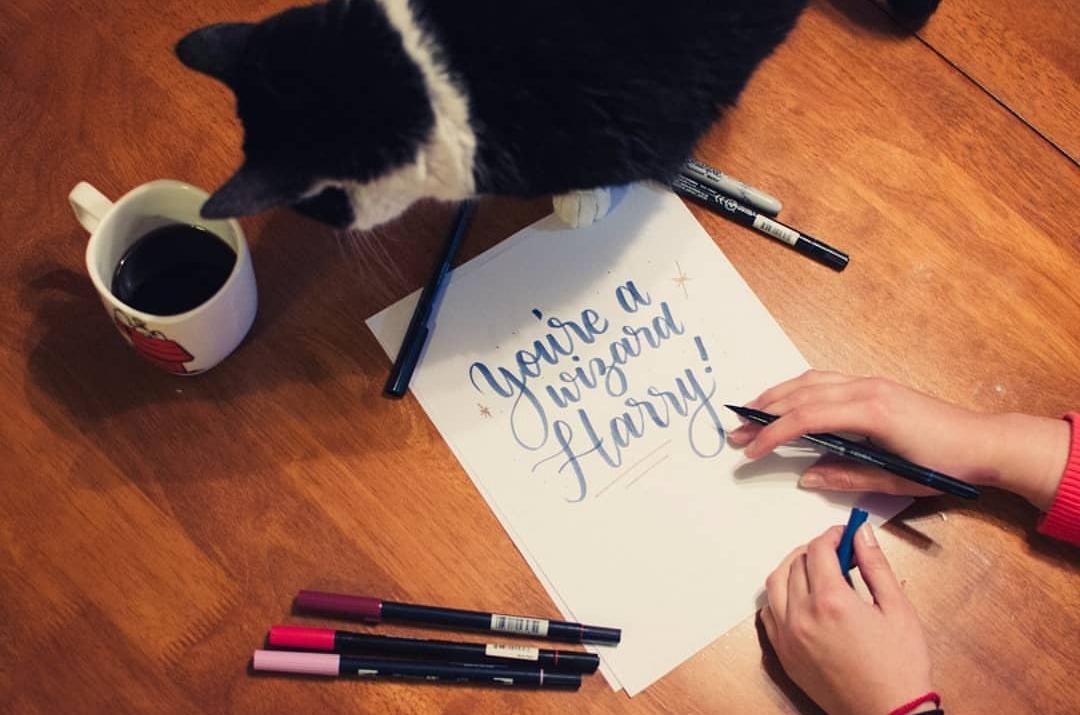 You're a
wizard
Harry!